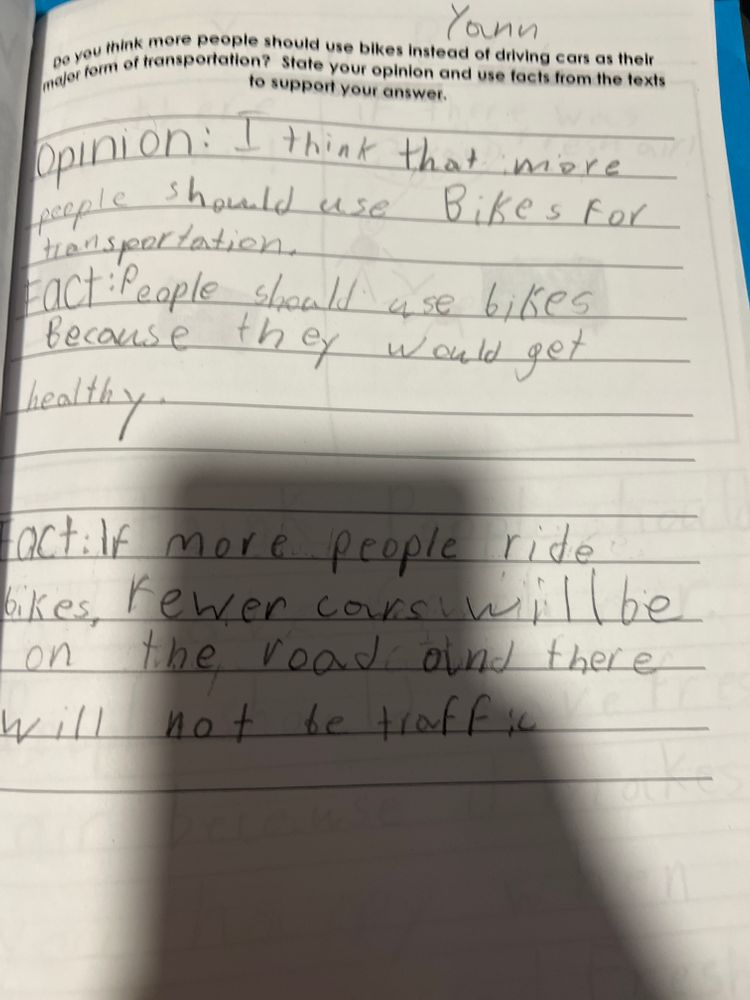 Yann
Do you think more people should use bikes instead of driving cars as their
major form of transportation? State your opinion and use facts from the texts
to support your answer.
Opinion: I think that more
people should use Bikes For
transportation.
Fact: People should use bikes
Because they would get
healthy.
Fact: If more people ride
bikes, Fewer cars will be
on the road and there
will not be traffic